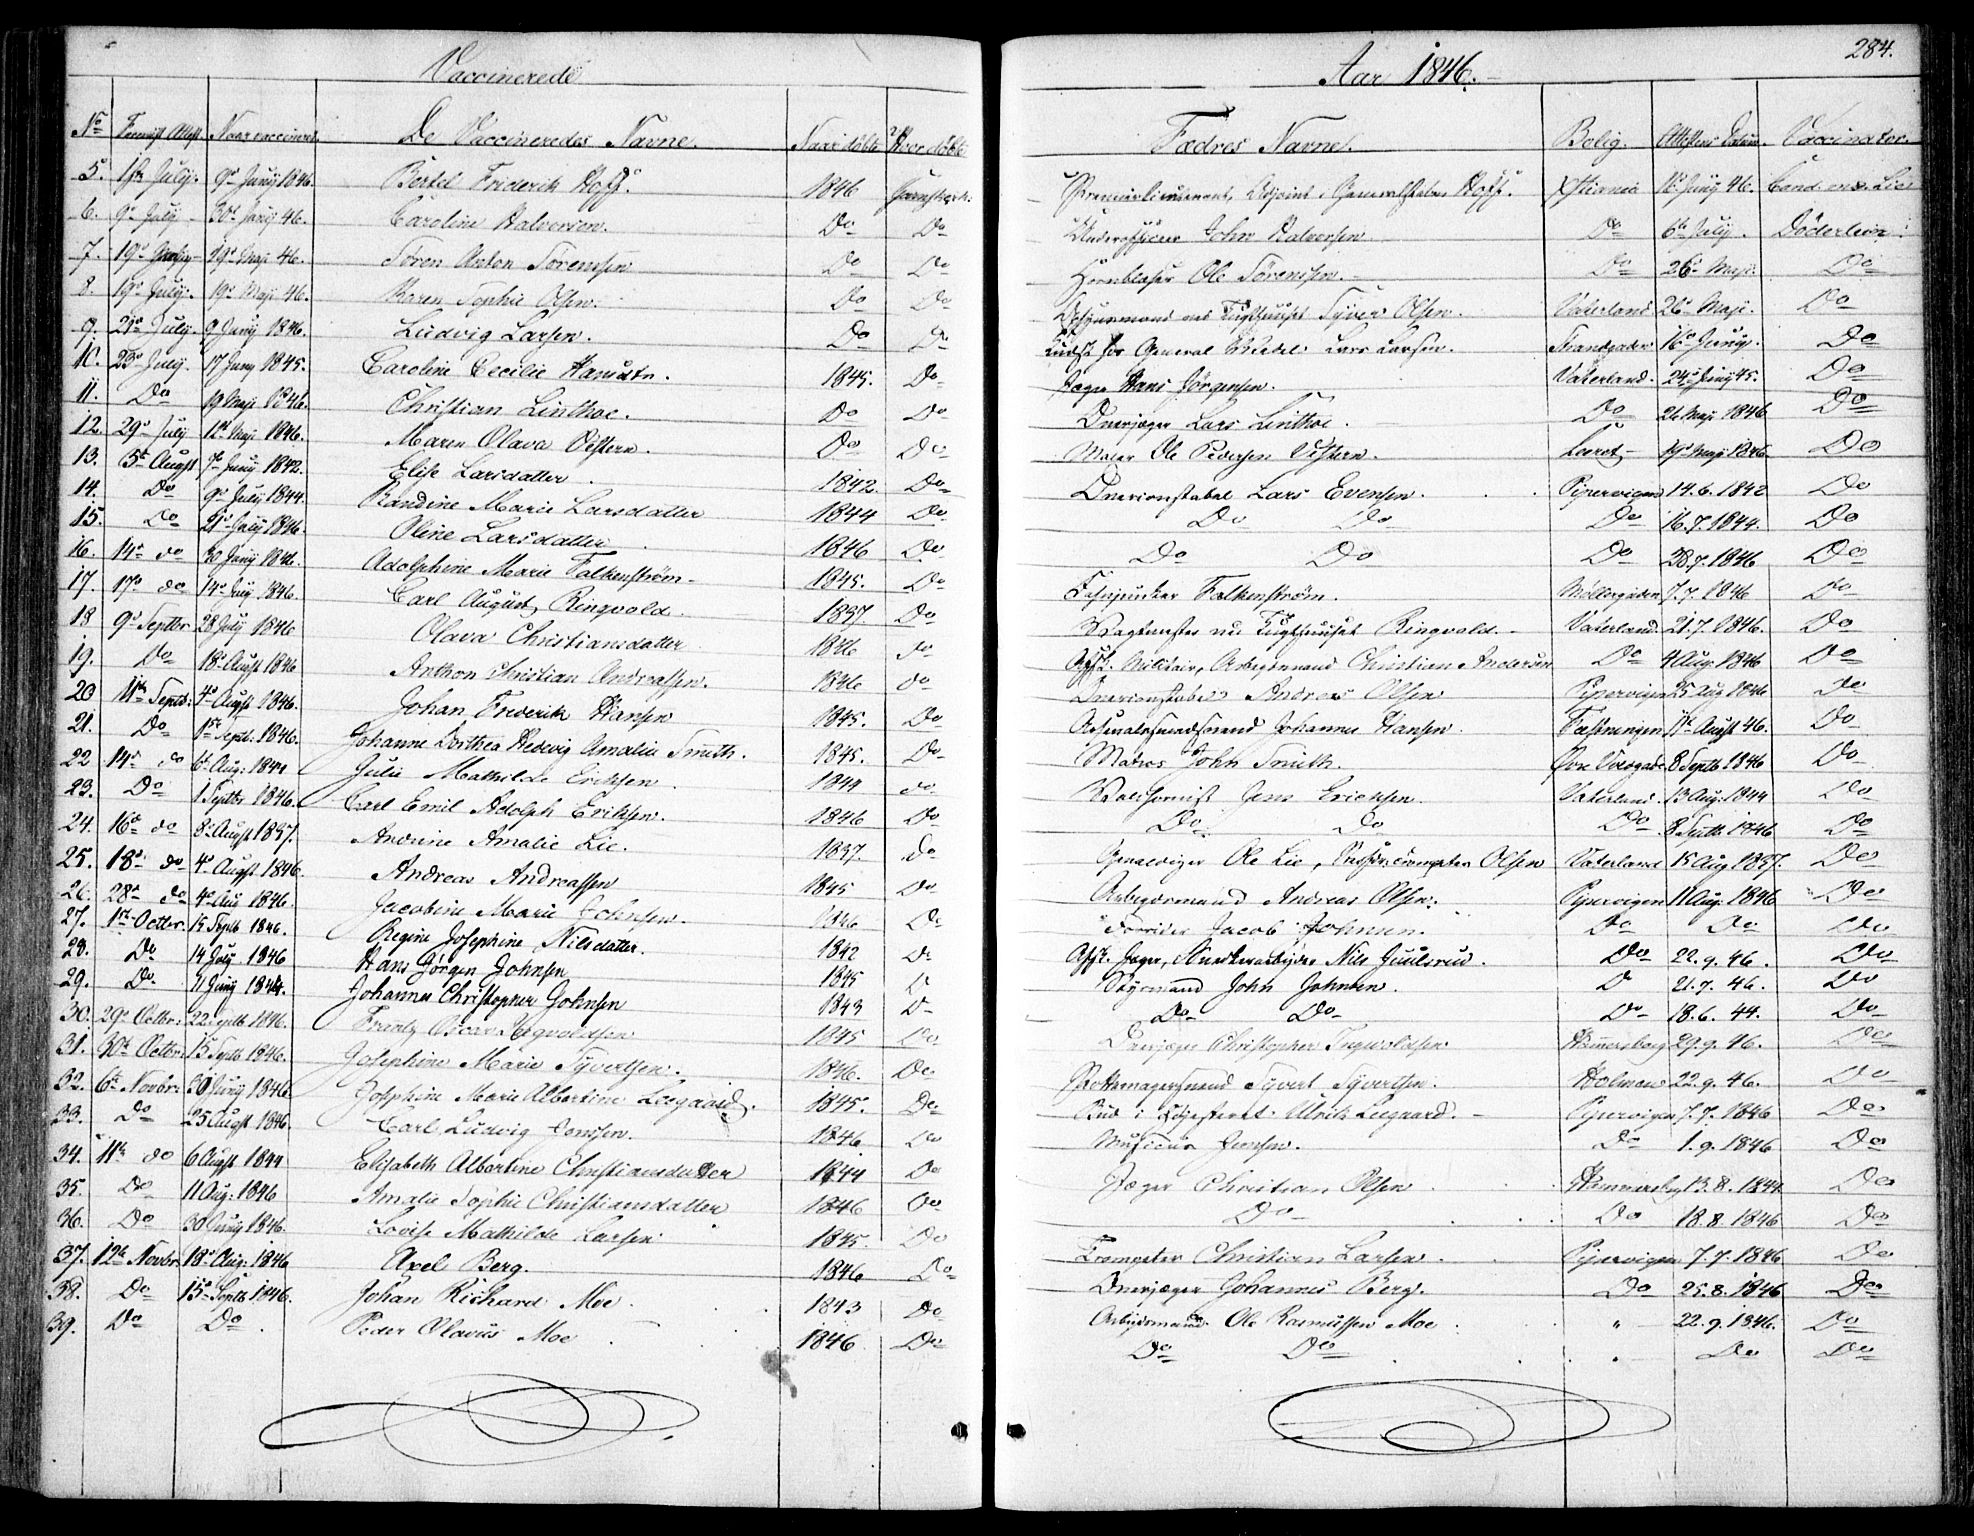 Vaccinerede
Aar 1846.
284.
No Fremvist Attest Naar vaccineret De Vaccineredes Navne. Naar døbte Hvor døbte Fædres Navne. Bolig. Attestens Datum. Vaccinator.
5. 1ste July. 9de Juny 1846. Bertel Friderik Hoff. 1846 Premierlieutenant, Adjoint i Generalstaben Hoff. Xstiania 16de Juny 46. Cand. med. Lie
6. 9de July 30te Juny 46. Caroline Halvorsen. Do Do Underofficeer John Halvorsen Do 6te July. Döderlein
7. 19de Maji 46. Sören Anton Sörensen Do Do Hornblaser Ole Sörensen. Do 26de Maji. Do
8. 19de July. 19de Maji 46. Karen Sophie Olsen. Do Do ved Tugthuuset Syver Olsen. Vaterland 26de Maji. Do
9. 21de July. 9 Juny 1846. Ludvig Larsen. Do Do Kudsk for General Wedel Lars Larsen. Strandgaden 16de Juny. Do
10. 23de July. 17 Juny 1845. Caroline Cecilie Hansdtr. 1845. Do Jæger Hans Jörgensen. Vaterland. 24de Juny 45. Do
11. Do 19 Maji 1846. Christian Linthoe. Do Do Overjæger Lars Linthoe. Do 26 Maji 1846 Do
12. 29de July 12te Maji 1846. Maren Olava Vestern. Do Do Ole Pedersen Vestern. Leeret 19de Maji 1846. Do
13. 5te Augst 7de Juny 1842. Elise Larsdatter. 1842 Do Divisionstabel Lars Evensen. Pipervigen 14.6.1842 Do
14. Do 9de July 1844. Randine Marie Larsdatter 1844 Do Do Do Do 16.7.1844. Do
15. Do 21de July 1846. Oline Larsdatter 1846 Do Do Do Do 28.7.1846 Do
16. 14de do 30 Juny 1846. Adolphine Marie Falkenström 1845. Do Fahnjunker Falkenström. Möllergaden 7.7.1846 Do
17. 17de do 14de July 1846. Carl August Ringvold. 1837 Do Vagtmester ved Tugthuuset Ringvold. Vaterland. 21.7.1846. Do
18 9de Septbr 28 July 1846 Olava Christiansdatter 1846 do Afsk. Militair, Arbeidsmand Christian Andersen Do 4 Aug. 1846 Do
19. Do 18de Augst 1846 Anthon Christian Andreassen. 1846 do Andreas Olsen Pipervigen 25 Aug 1846 Do
20 11te Septb: 4de Augst 1846. Johan Frederik Hansen 1845. Do Johannes Hansen. Fæstningen 11te Augst 46. Do
21. Do 1ste Septb. 1846. Johanne Dorthea Hedevig Amalia Smith. 1845. Do Matros John Smith. Øvre Voldgade 8 Septb 1846 Do
22 14de do 6te Aug. 1844 Julie Mathilde Erichsen 1844 do Jens Erichsen. Vaterland. 13 Aug. 1844 Do
23. Do 1 Septbr 1846. Carl Emil Adolph Erichsen. 1846 Do Do Do Do 8 Septb 1846 Do
24. 16de do 8de Augst 1837. Andrine Amalie Lie. 1837. Do Ole Lie, Olsen Vaterland 15 Aug 1837. Do
25. 18de do 4de Augst 1846. Andreas Andreassen 1845 Do Arbeidsmand Andreas Olsen. Pipervigen 11 Aug. 1846 Do
26. 28de do 4de Aug 1846. Jacobine Marie Johnsen. 1846 Do Jacob Johnsen. Do Do Do
27. 1ste Octbr. 15 Septb 1846. Regine Josephine Nilsdatter. 1842 Do Afsk. Jæger, Nils Juulsrud. Do 22.9.46. Do
28. Do 14 July 1846 Hans Jørgen Johnsen 1845 D Styrmand John Johnsen. D 21.7.46. Do
29. Do 11 Juny 1844. Johannes Christopher Johnsen 1843 D Do Do Do 18.6.44. Do
30. 29de Octbr: 22 Septb 1846. Frantz Oscar Ingvoldsen 1845 Do Overjæger Christopher Ingvoldsen Hammersborg 29.9.46. Do
31. 30te Octbr: 15 Septb 1846. Josephine Marie Syvertsen. 1846. Do Syvert Syvertsen. Holmen 22.9.46. Do
32. 6te Novbr: 30 Juny 1846. Josephine Marie Albertine Leegaard. 1845. Do Bud i Ulrik Leegaard. Pipervigen 7.7.1846 Do
33. Do 25 Augst 1846. Carl Ludvig Jenssen. 1846 Do Musicus Jensen. Do 1.9.1846 Do
34. 11te do 6 Augst 1844 Elisabeth Albertine Christiansdatter 1844 Do Jæger Christian Olsen Hammersborg 13.8.1844 Do
35. Do 11 Aug: 1846 Amalie Sophie Christiansdatter 1846 Do Do Do 18.8.1846 Do
36. Do 30 Juny 1846. Lovise Mathilde Larsen 1845. Do Trompeter Christian Larsen Pipervigen 7.7.1846 Do
37. 12te Novbr: 18de Aug. 1846 Axel Berg. 1846 Do Overjæger Johannes Berg. Do 25.8.1846 Do
38. Do 15de Septb 1846. Johan Richard Moe 1843 Do Arbeidsmand Ole Rasmussen Moe " 22.9.1846. Do
39. Do Do Peder Olavus Moe 1846 Do Do Do " Do Do